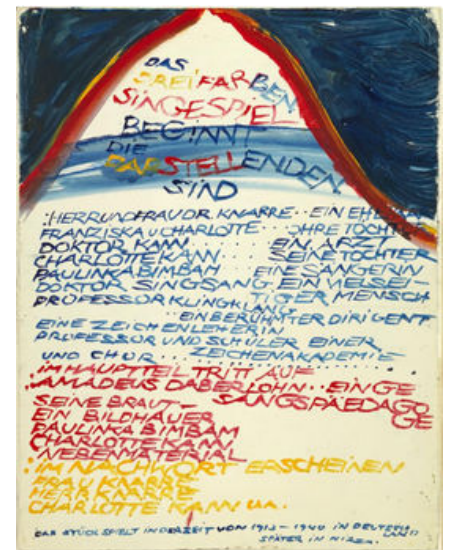 DAS
DREIFARBEN
SINGESPIEL
BEGINNT
DIE
DARSTELLENDEN
SIND
: HERR UND FRAU DR KNARRE .. EIN
FRANZISKA U CHARLOTTE ..... IHRE TÖCHTER
DOKTOR KANN ............ EIN ARZT
CHARLOTTE KANN ..... SEINE TOCHTER
PAULINKA BIMBAM EINE SÄNGERIN
DOKTOR SINGSANG EIN VIELSEI-
TIGER MENSCH
PROFESSOR KLINGKLANG
EIN BERÜHMTER DIRIGENT
EINE ZEICHENLEHERIN
PROFESSOR UND SCHÜLER EINER
UND CHOR ... ZEICHENAKADEMIE
: IM HAUPTTEIL TRITT AUF
: AMADEUS DABERLOHN .. EIN GE
SANGSPAEDAGO
GE
SEINE BRAUT -
EIN BILDHAUER
PAULINKA BIMBAM
CHARLOTTE KANN
: NEBENMATERIAL
: IM NACHWORT ERSCHEINEN
FRAU KNARRE
HERR KNARRE
CHARLOTTE KANN UA.
DAS STÜCK SPIELT IN DER ZEIT VON 1913 – 1940 IN DEUTSCH
LAND
SPÄTER IN NIZZA.